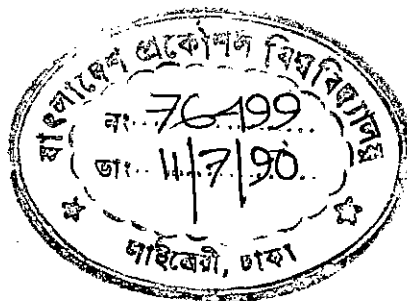 বাংলাদেশ প্রকৌশল বিশ্ববিদ্যালয়
নং 76499
তাং 11/7/90
লাইব্রেরী, ঢাকা